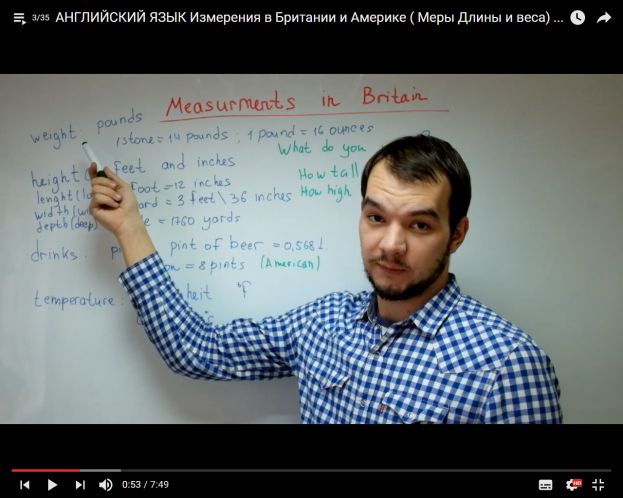 3/35 АНГЛИЙСКИЙ ЯЗЫК Измерения в Британии и Америке ( Меры Длины и веса) ...
Measurments in Britain
weight: pounds
1 stone = 14 pounds ; 1 pound = 16 ounces
What do you
height feet and inches
How tall
foot = 12 inches
lenght
= 3 feet \ 36 inches
How high
width
depth (deep) = 1760 yards
drinks. pint of beer = 0,568 l.
= 8 pints (American)
temperature: heit °F
0:53 / 7:49
HD